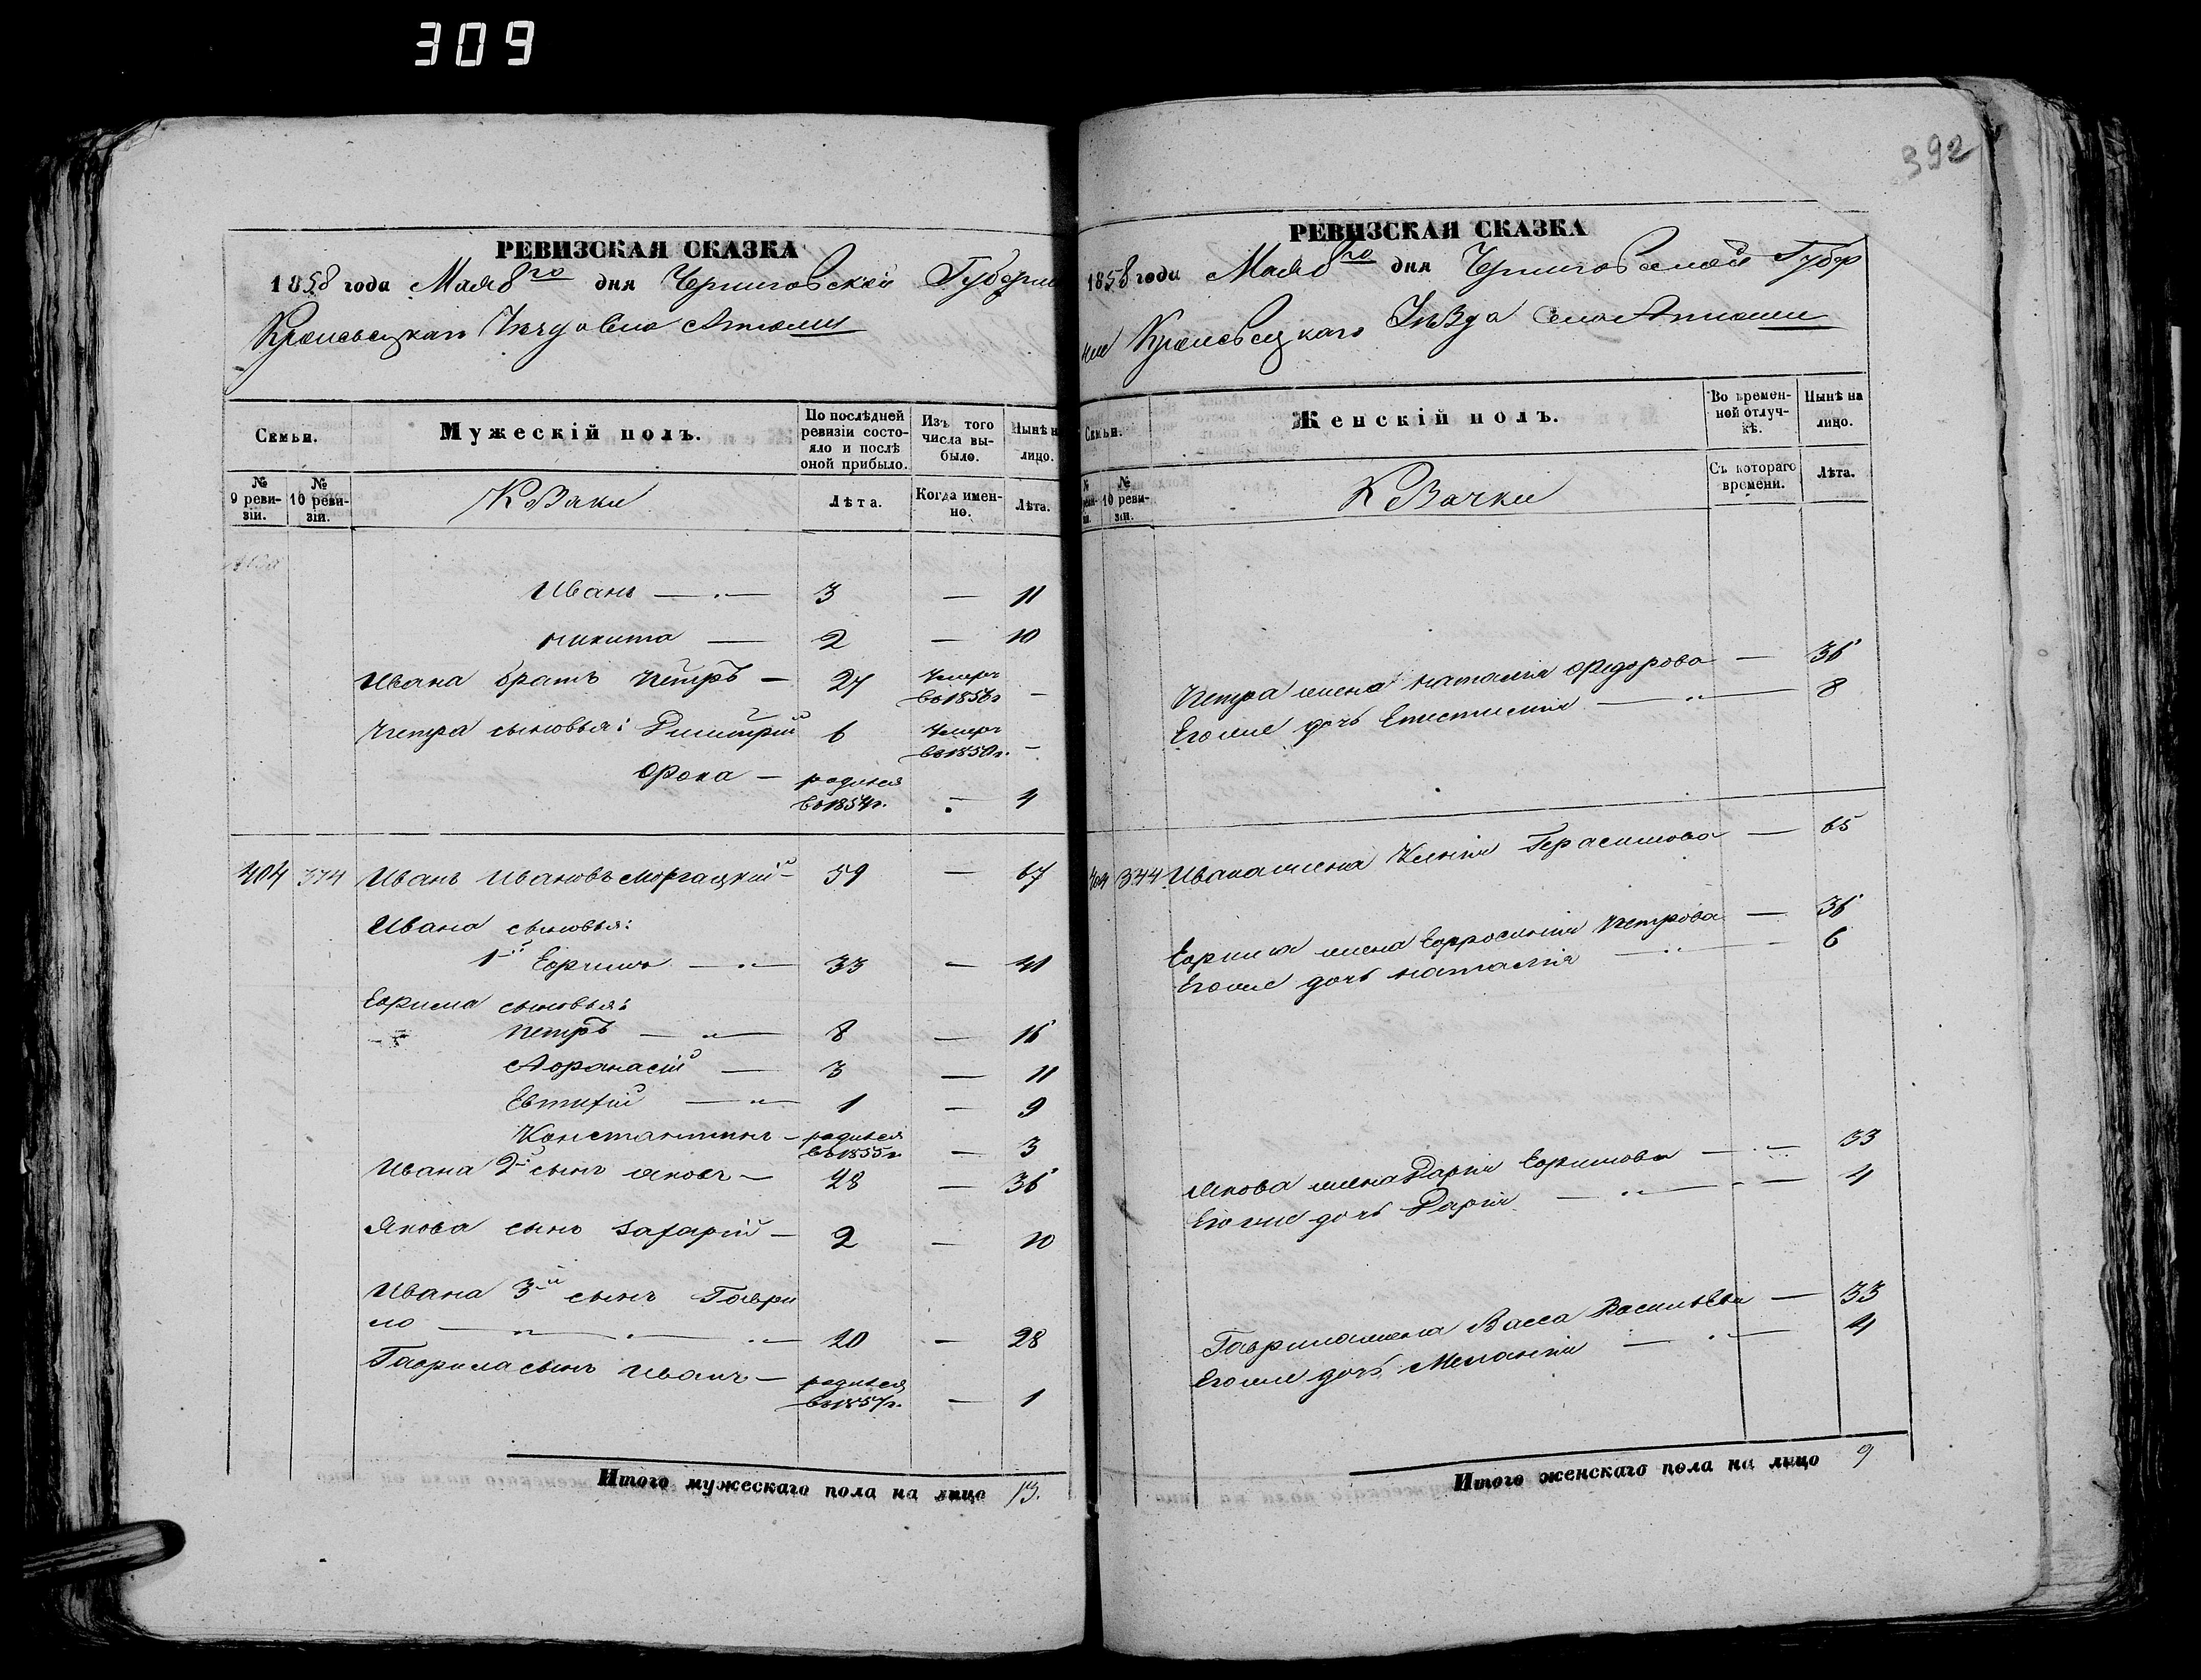 309
РЕВИЗСКАЯ СКАЗКА
1858 года Мая 8го дня Черниговской Губерни
Кролевецкаго Уѣзда Села Атюши
Семьи.
Мужескій полъ.
По послѣдней ревизіи состояло и послѣ оной прибыло.
Изъ того числа выбыло.
Нынѣ н лицо.
№ 9 ревизіи.
№ 10 ревизіи.
Лѣта.
Когда именно.
Лѣта.
Иванъ — 3 — 11
Никита — 2 — 10
Ивана братъ Петръ — 27 Умеръ въ 1856 г —
Петра сыновья: Димитрій 6 Умеръ въ 1850 г. —
Фока — родился въ 1854 г. — 4
404 374 Иванъ Ивановъ Моргацкій — 59 — 67
Ивана сыновья:
1й Ефимъ — 33 — 41
Ефима сыновья:
Петръ — 8 — 16
Афанасій — 3 — 11
Евтихій — 1 — 9
Константинъ — родился въ 1855 г. — 3
Ивана 2й сынъ Яковъ — 28 — 36
Якова сынъ Захарій — 2 — 10
Ивана 3й сынъ Гаври
ло — 20 — 28
Гаврила сынъ Иванъ — родился въ 1857 г. — 1
Итого мужескаго пола на лицо 13.
392
РЕВИЗСКАЯ СКАЗКА
1858 года Мая 8го дня Черниговской Губер
ніи Кролевецкаго Уѣзда Села Атюши
Семьи.
Женскій полъ.
Во временной отлучкѣ.
Нынѣ на лицо.
№ 10 ревизіи.
Съ котораго времени.
Лѣта.
Петра жена Наталія Федорова — 36
Его же дочь Епистимія — 8
404 374 Ивана жена Ксенія Герасимова — 65
Ефима жена Евфросинія Петрова — 36
Его же дочь Наталія — 6
Якова жена Дарія Ефимова — 33
Его же дочь Дарія — 4
Гаврила жена Васса Васильева — 33
Его же дочь Меланія — 4
Итого женскаго пола на лицо 9